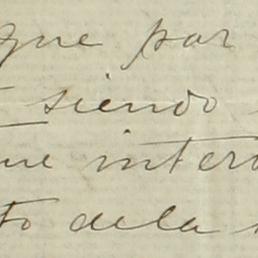 que por
siendo
que inter
to dela